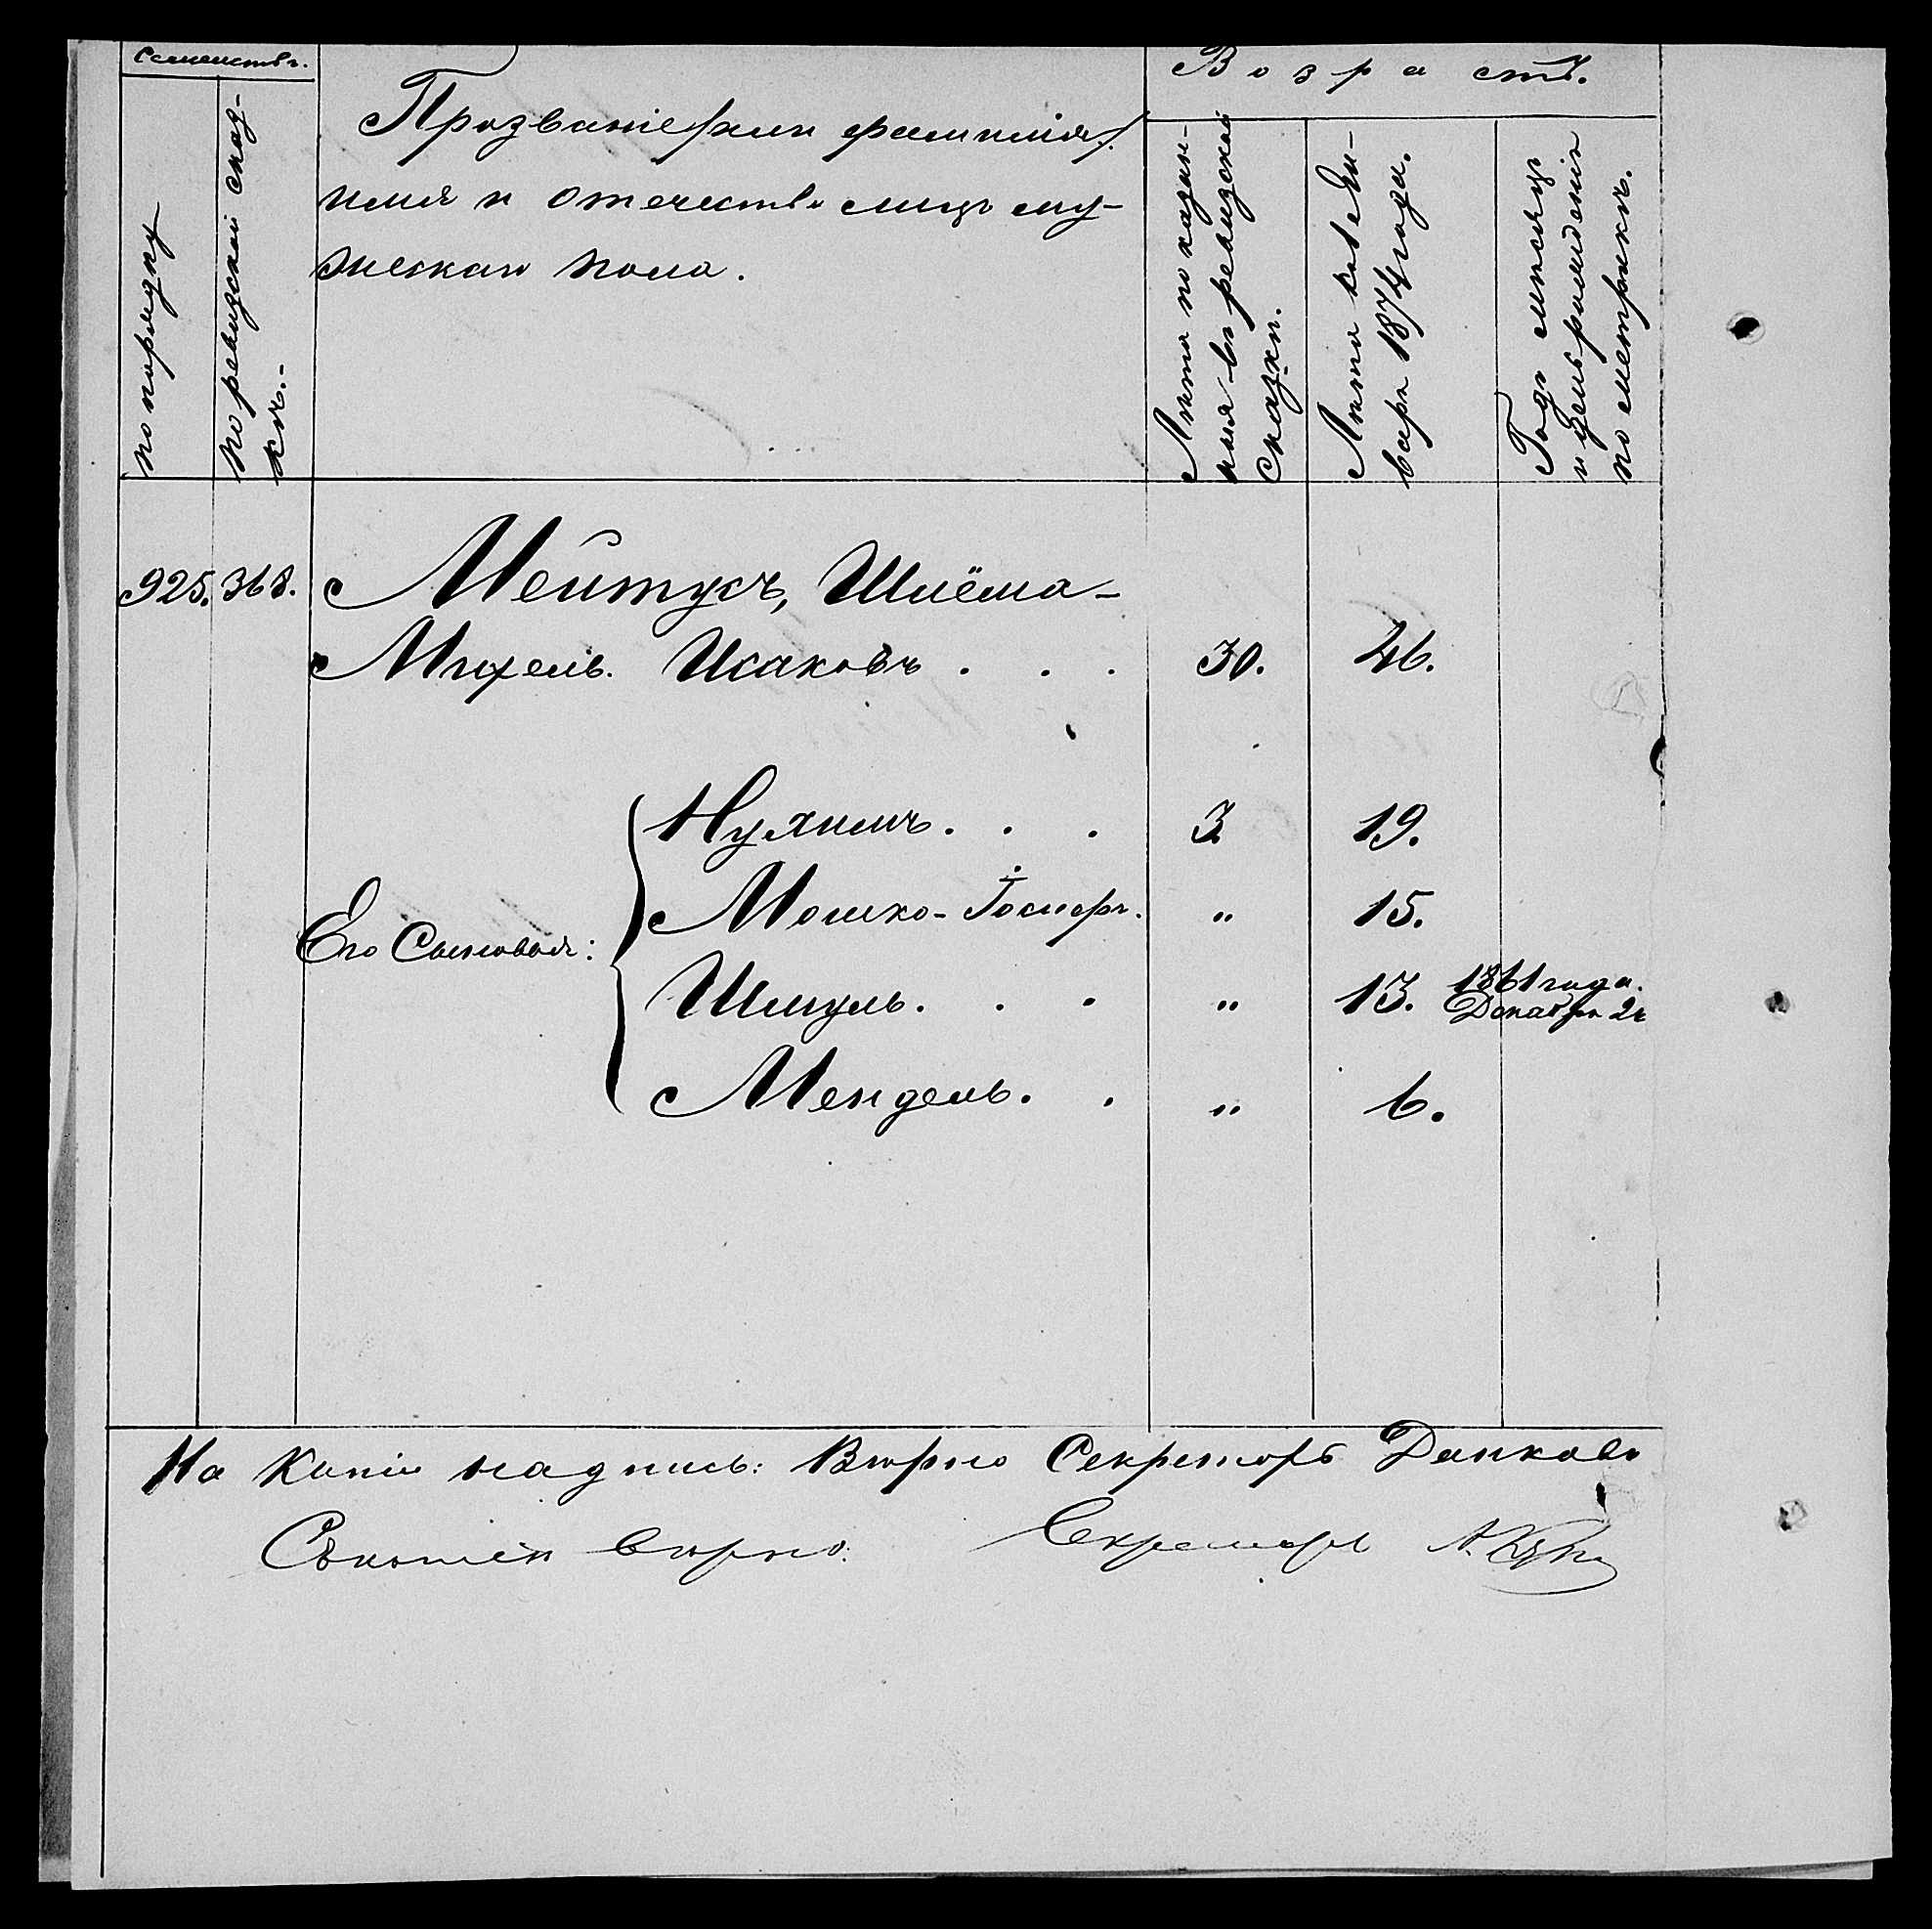 Семействъ.
по порядку
по ревизской сказ-
кѣ.-
Прозваніе /или фамилія/.
имя и отечество лицъ му-
жескаго пола.
Возрастъ.
Лѣта показан-
ныя въ ревизской
сказкѣ.
Лѣта къ 1 Ян-
варя 1874 года.
Годъ мѣсяцъ
и день рожденія
по метрикѣ.
925. 368. Мейтусъ, Шлёма-
Михель Исаковъ . . . 30. 46.
Нухимъ . . . 3 19.
Мошко-Іосифъ. " 15.
Его Сыновья:
Шмуль . . . " 13. 1861 года.
Декабря 2
Мендель . . " 6.
На копіи надпись: Вѣрно Секретарь Данковъ
Съ копіей вѣрно: Секретарь А.